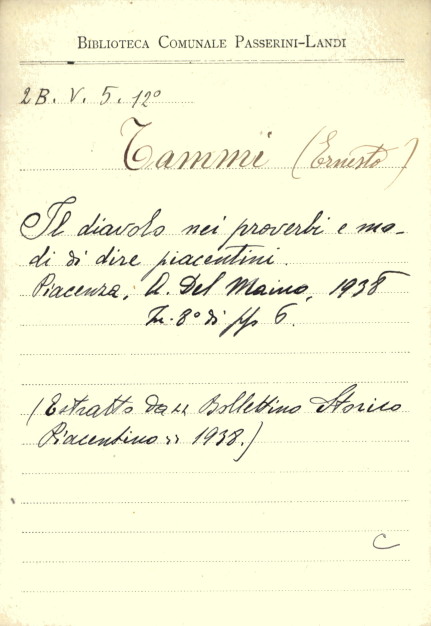 BIBLIOTECA COMUNALE PASSERINI-LANDI
2B. V. 5. 12º
Tammi (Ernesto)
Il diavolo nei proverbi e mo-
di di dire piacentini.
Piacenza, A. Del Maino, 1938
In-8º di pp 6.
(Estratto da « Bollettino Storico
Piacentino » 1938.)
C